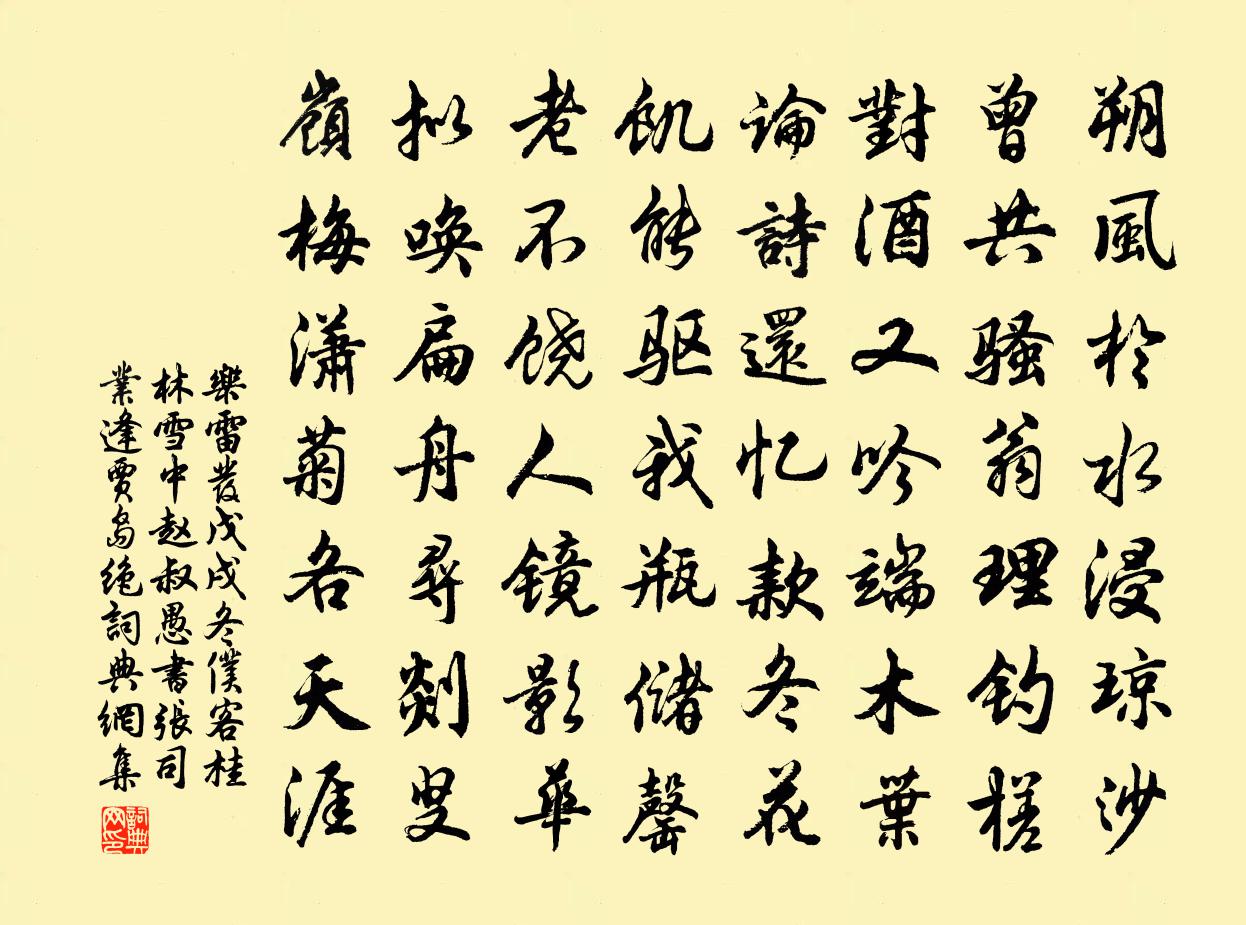 朔風於水浸琼沙
曾共骚翁理钓槎
對酒又吟端木葉
論詩還忆款冬花
飢能驱我瓶储罄
老不饶人镜影華
拟唤扁舟尋剡叟
嶺梅潇菊各天涯
樂雷發戊戌冬僕客桂
林雪中赵叔愚書張司
業逢賈島绝詞典網集
詞典网印